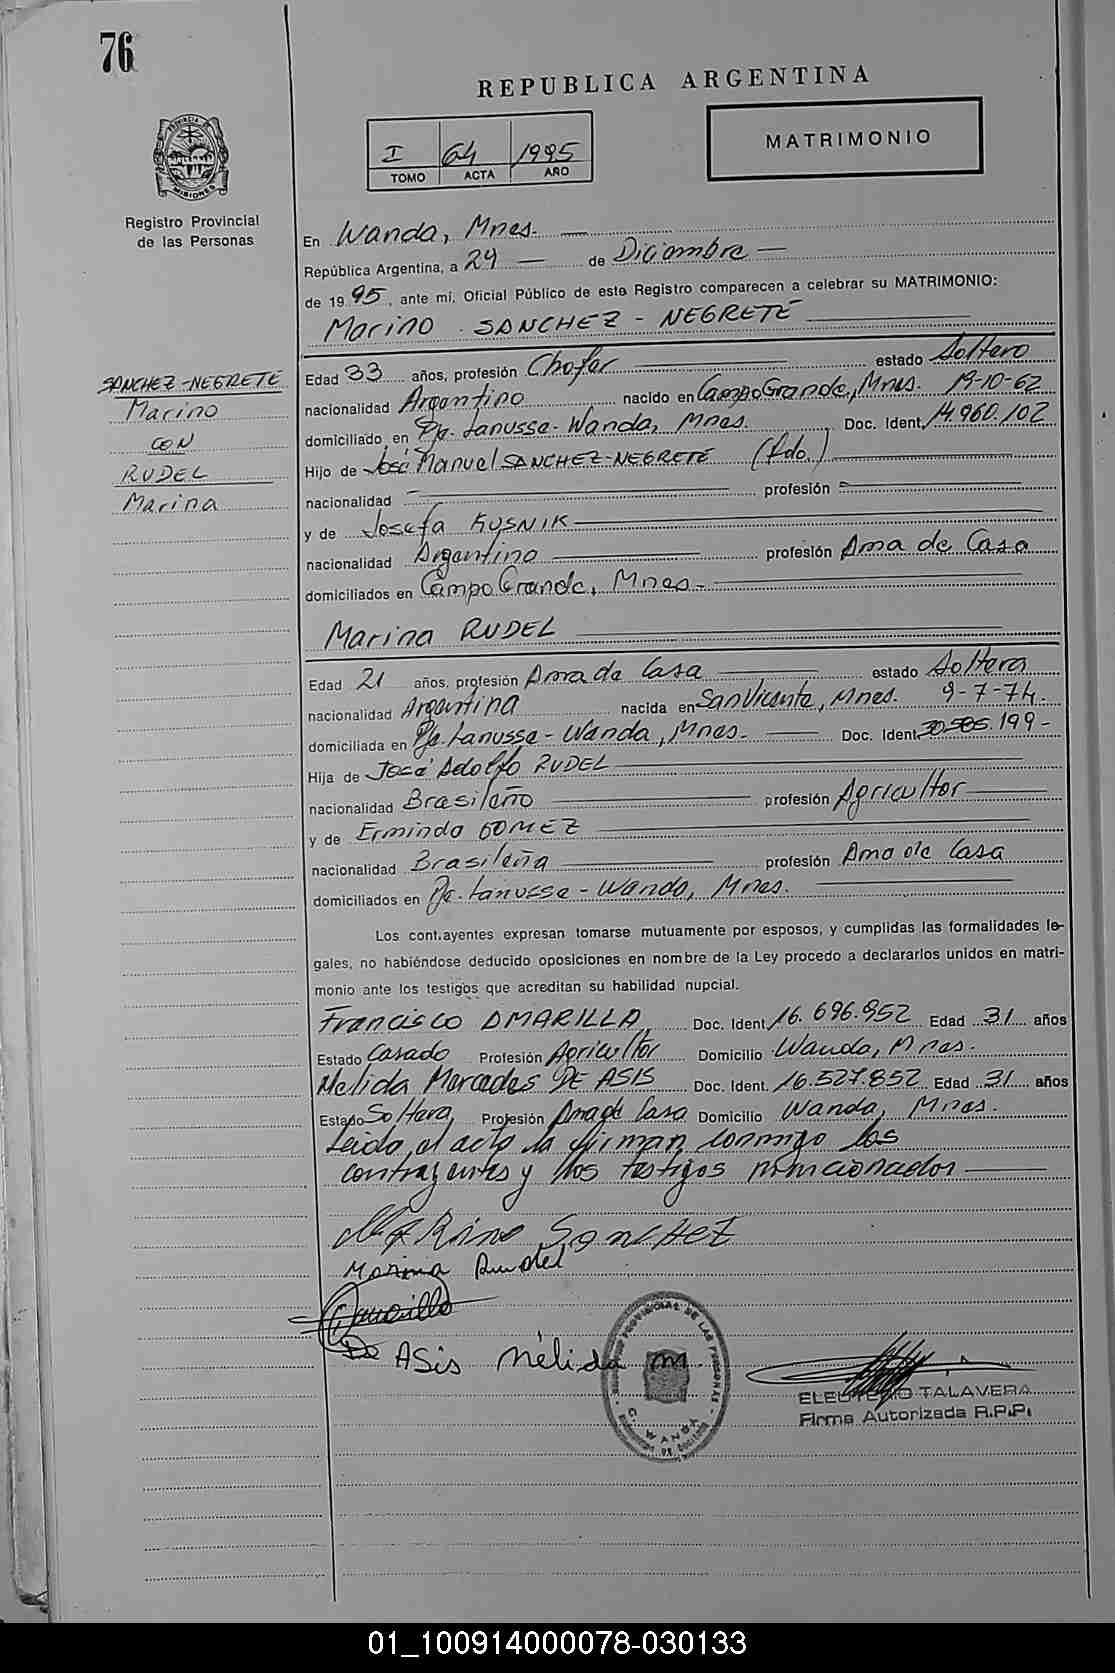 76
REPUBLICA ARGENTINA
PROVINCIA DE MISIONES
Registro Provincial
de las Personas
I 64 1995
TOMO ACTA AÑO
MATRIMONIO
En Wanda, Mnes.
República Argentina, a 29 de Diciembre
de 1995, ante mí, Oficial Público de este Registro comparecen a celebrar su MATRIMONIO:
Marino SANCHEZ - NEGRETE
SANCHEZ-NEGRETE
Marino
CON
RUDEL
Marina
Edad 33 años, profesión Chofer estado Soltero
nacionalidad Argentino nacido en Campo Grande, Mnes. 19-10-62
domiciliado en Pja. Lanusse - Wanda, Mnes. Doc. Ident. 14.960.102
Hijo de José Manuel SANCHEZ-NEGRETE (fdo.)
nacionalidad profesión
y de Josefa KUSNIK
nacionalidad Argentino profesión Ama de Casa
domiciliados en Campo Grande, Mnes.
Marina RUDEL
Edad 21 años, profesión Ama de Casa estado Soltera
nacionalidad Argentina nacida en San Vicente, Mnes. 9-7-74.
domiciliada en Pja. Lanusse - Wanda, Mnes. Doc. Ident. 199
Hija de José Adolfo RUDEL
nacionalidad Brasileño profesión Agricultor
y de Erminda GOMEZ
nacionalidad Brasileña profesión Ama de Casa
domiciliados en Pja. Lanusse - Wanda, Mnes.
Los cont.ayentes expresan tomarse mutuamente por esposos, y cumplidas las formalidades le-
gales, no habiéndose deducido oposiciones en nombre de la Ley procedo a declararlos unidos en matri-
monio ante los testigos que acreditan su habilidad nupcial.
Francisco AMARILLA, Doc. Ident. 16.696.952 Edad 31 años
Estado Casado Profesión Agricultor Domicilio Wanda, Mnes.
Nelida Mercedes DE ASIS Doc. Ident. 16.527.852 Edad 31 años
Estado Soltera Profesión Ama de Casa Domicilio Wanda, Mnes.
Leida el acta la firman conmigo los
contrayentes y los testigos mencionados
MARINO SANCHEZ
Marina Rudel
Amarilla
De ASis Nélida M.
PROVINCIAL DE LAS PERSONAS
WANDA
ELEUTERIO TALAVERA
Firma Autorizada R.P.P.
01_100914000078-030133